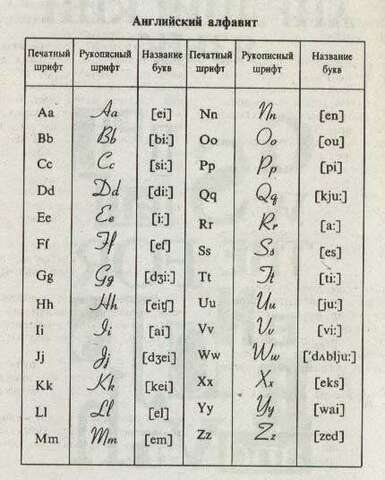 Английский алфавит
Печатный шрифт Рукописный шрифт Название букв Печатный шрифт Рукописный шрифт Название букв
Aa Aa [ei] Nn Nn [en]
Bb Bb [bi:] Oo Oo [ou]
Cc Cc [si:] Pp Pp [pi]
Dd Dd [di:] Qq Qq [kju:]
Ee Ee [i:] Rr Rr [a:]
Ff Ff [ef] Ss Ss [es]
Gg Gg [dʒi:] Tt Tt [ti:]
Hh Hh [eitʃ] Uu Uu [ju:]
Ii Ii [ai] Vv Vv [vi:]
Jj Jj [dʒei] Ww Ww ['dʌblju:]
Kk Kk [kei] Xx Xx [eks]
Ll Ll [el] Yy Yy [wai]
Mm Mm [em] Zz Zz [zed]